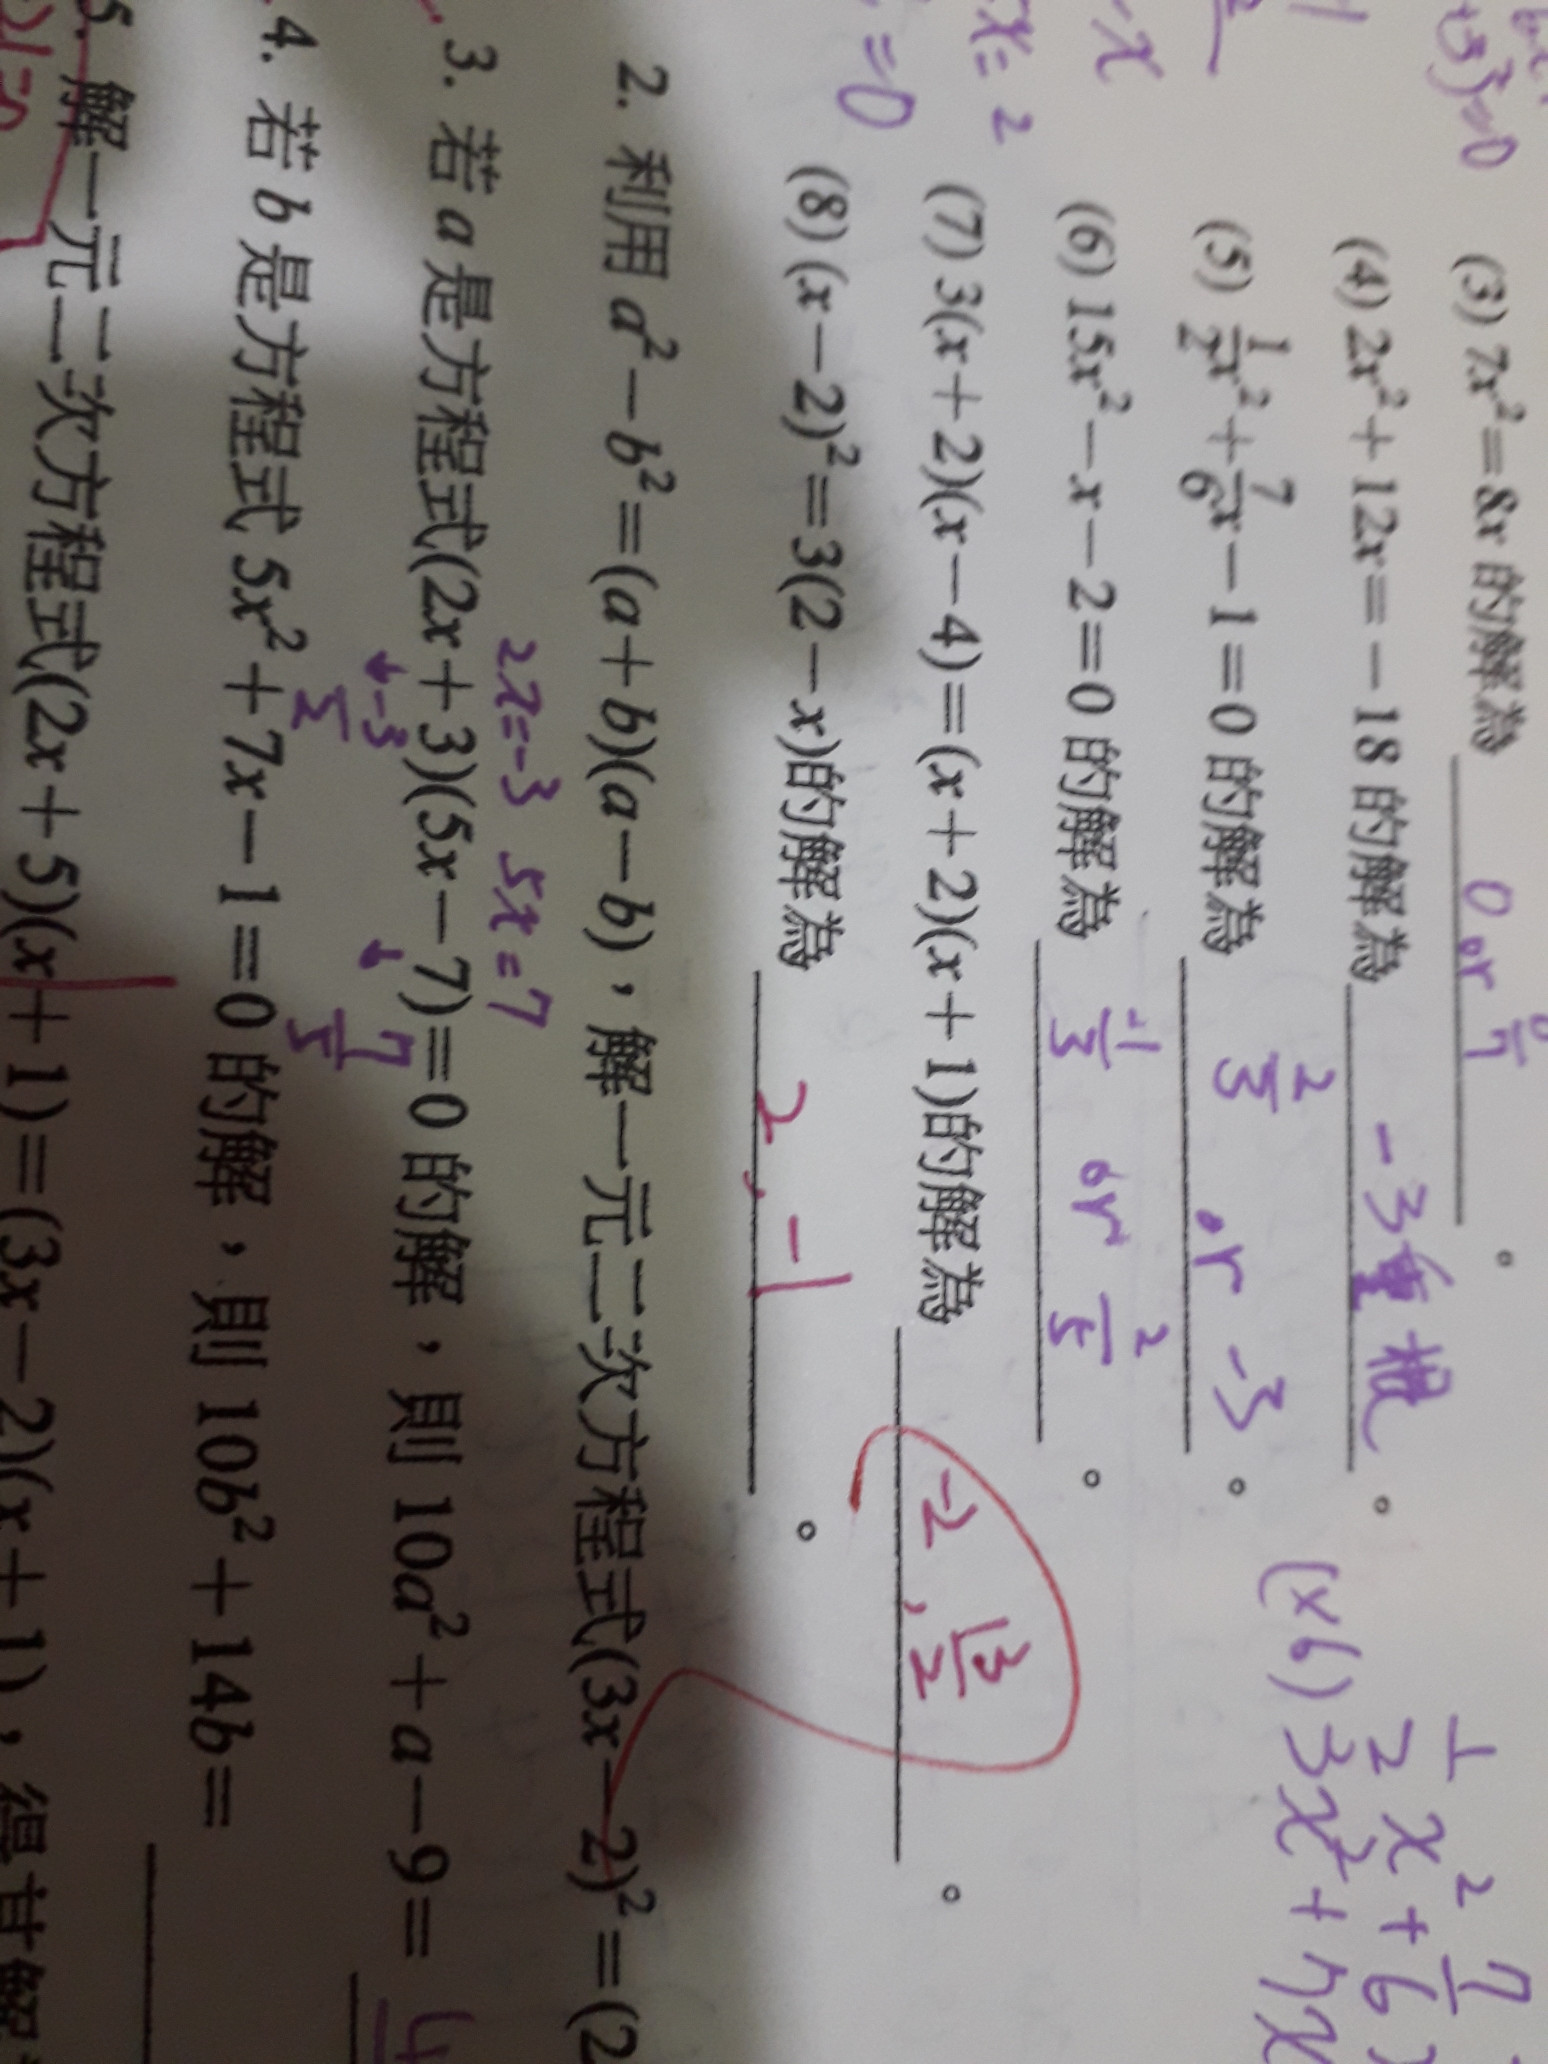 (3) 7x²=8x 的解為 0 or 8/7 。
(4) 2x²+12x=-18 的解為 -3重根 。
(5) 1/2x²+7/6x-1=0 的解為 2/3 or -3 。
(6) 15x²-x-2=0 的解為 -1/3 or 2/5 。
(7) 3(x+2)(x-4)=(x+2)(x+1)的解為 -2, 13/2 。
(8) (x-2)²=3(2-x)的解為 2, -1 。
1/2 x² + 7/6
(x6) 3x²+7x
x= 2
=0
2. 利用 a²-b²=(a+b)(a-b),解一元二次方程式(3x-2)²=(2
2x=-3 5x=7
3. 若 a 是方程式(2x+3)(5x-7)=0 的解,則 10a²+a-9=
-3/2 7/5
4. 若 b 是方程式 5x²+7x-1=0 的解,則 10b²+14b=
5. 解一元二次方程式(2x+5)(x+1)=(3x-2)(x+1),得其解